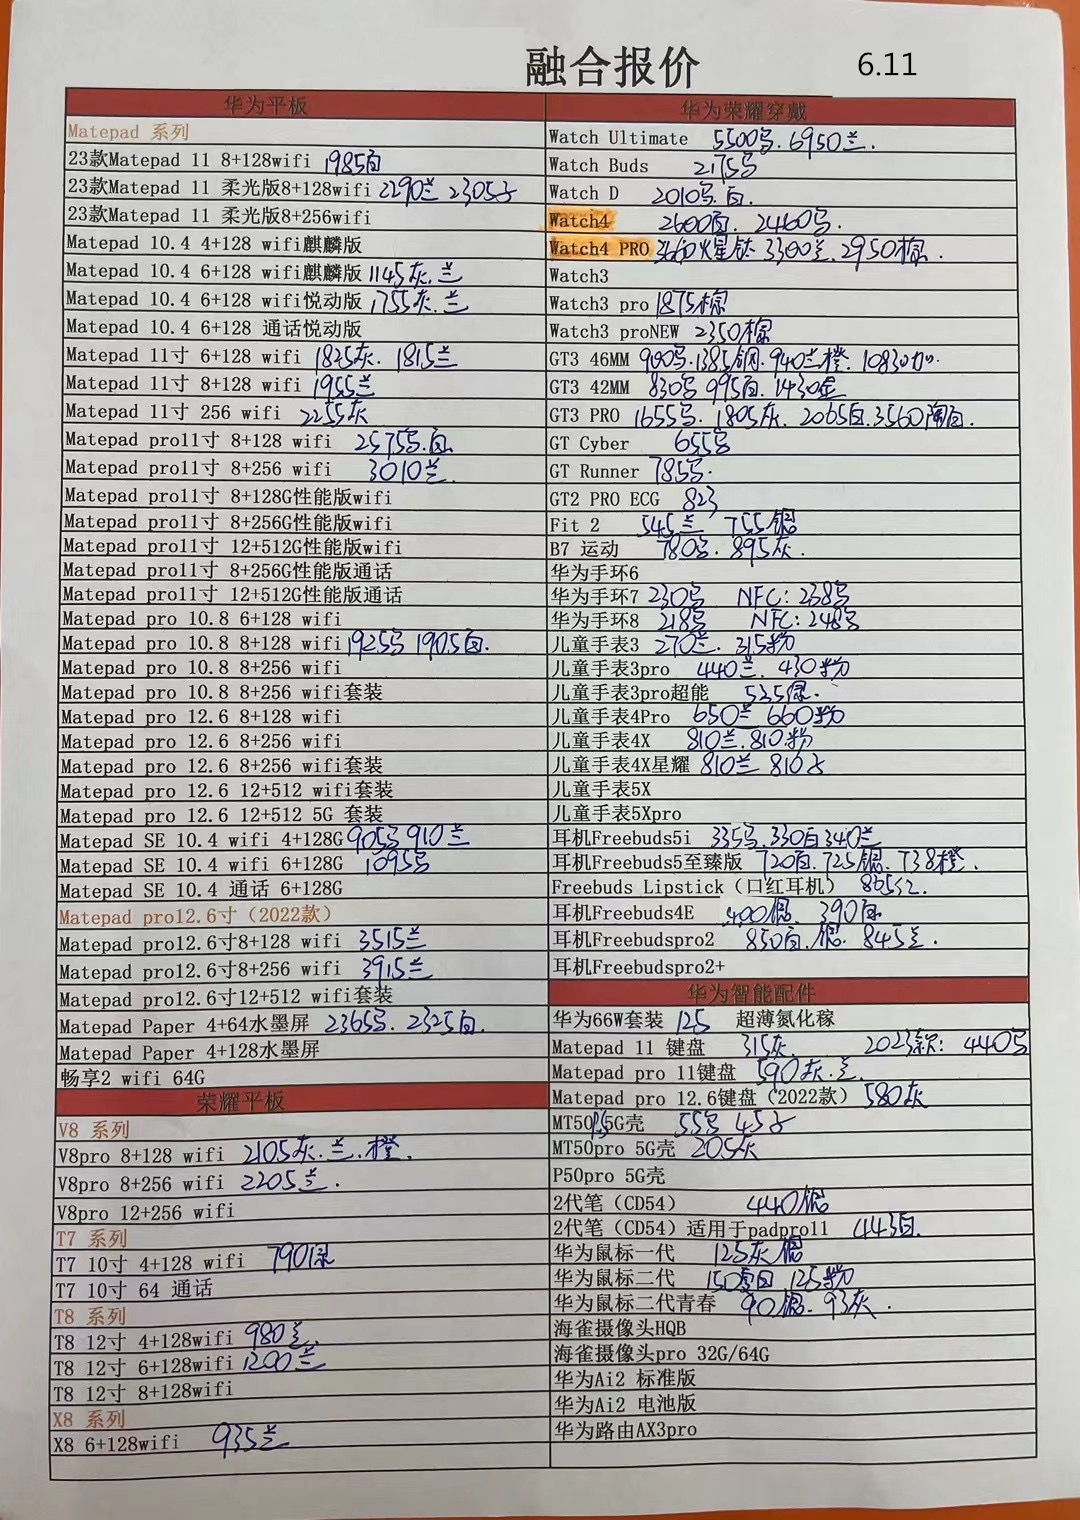 融合报价 6.11
华为平板
Matepad 系列
23款Matepad 11 8+128wifi 1985白
23款Matepad 11 柔光版8+128wifi 2290兰 2305
23款Matepad 11 柔光版8+256wifi
Matepad 10.4 4+128 wifi麒麟版
Matepad 10.4 6+128 wifi麒麟版 1145灰.兰
Matepad 10.4 6+128 wifi悦动版 1755灰.兰
Matepad 10.4 6+128 通话悦动版
Matepad 11寸 6+128 wifi 1825灰. 1815兰
Matepad 11寸 8+128 wifi 1955兰
Matepad 11寸 256 wifi 2255灰
Matepad pro11寸 8+128 wifi 2575号.白
Matepad pro11寸 8+256 wifi 3010兰.
Matepad pro11寸 8+128G性能版wifi
Matepad pro11寸 8+256G性能版wifi
Matepad pro11寸 12+512G性能版wifi
Matepad pro11寸 8+256G性能版通话
Matepad pro11寸 12+512G性能版通话
Matepad pro 10.8 6+128 wifi
Matepad pro 10.8 8+128 wifi 1925号 1905白.
Matepad pro 10.8 8+256 wifi
Matepad pro 10.8 8+256 wifi套装
Matepad pro 12.6 8+128 wifi
Matepad pro 12.6 8+256 wifi
Matepad pro 12.6 8+256 wifi套装
Matepad pro 12.6 12+512 wifi套装
Matepad pro 12.6 12+512 5G 套装
Matepad SE 10.4 wifi 4+128G 905号 910兰
Matepad SE 10.4 wifi 6+128G 1095号
Matepad SE 10.4 通话 6+128G
Matepad pro12.6寸（2022款）
Matepad pro12.6寸8+128 wifi 3515兰
Matepad pro12.6寸8+256 wifi 3915兰
Matepad pro12.6寸12+512 wifi套装
Matepad Paper 4+64水墨屏 2365号. 2325白.
Matepad Paper 4+128水墨屏
畅享2 wifi 64G
荣耀平板
V8 系列
V8pro 8+128 wifi 2105灰.兰.橙.
V8pro 8+256 wifi 2205兰.
V8pro 12+256 wifi
T7 系列
T7 10寸 4+128 wifi 790绿
T7 10寸 64 通话
T8 系列
T8 12寸 4+128wifi 980兰.
T8 12寸 6+128wifi 1200兰
T8 12寸 8+128wifi
X8 系列
X8 6+128wifi 935兰
华为荣耀穿戴
Watch Ultimate 5500号. 6950兰.
Watch Buds 2175号
Watch D 2010号.白.
Watch4 2600白. 2460号.
Watch4 PRO 火星钛 3300兰.2950棕.
Watch3
Watch3 pro 1875棕
Watch3 proNEW 2350棕
GT3 46MM 900号.1385钢.940兰橙. 1083
GT3 42MM 830号 995白.1430金
GT3 PRO 1655号. 1805灰. 2065白.3560陶白.
GT Cyber 655号
GT Runner 785号.
GT2 PRO ECG 823
Fit 2 545兰 755银
B7 运动 780号. 895灰.
华为手环6
华为手环7 230号 NFC: 238号
华为手环8 218号 NFC: 248号
儿童手表3 270兰. 315粉
儿童手表3pro 440兰. 430粉
儿童手表3pro超能 535绿.
儿童手表4Pro 650兰 660粉
儿童手表4X 810兰.810粉
儿童手表4X星耀 810兰 810
儿童手表5X
儿童手表5Xpro
耳机Freebuds5i 335号.330白340兰
耳机Freebuds5至臻版 720白.725银.738橙.
Freebuds Lipstick（口红耳机） 865红.
耳机Freebuds4E 400银. 390白
耳机Freebudspro2 850白.银. 845兰.
耳机Freebudspro2+
华为智能配件
华为66W套装 125 超薄氮化稼
Matepad 11 键盘 315灰. 2023款: 440号
Matepad pro 11键盘 590灰.兰.
Matepad pro 12.6键盘（2022款） 580灰
MT50 5G壳 55号 45
MT50pro 5G壳 205灰
P50pro 5G壳
2代笔（CD54） 440银
2代笔（CD54）适用于padpro11 443白.
华为鼠标一代 125灰 银
华为鼠标二代 150 125粉
华为鼠标二代青春 90银. 93灰.
海雀摄像头HQB
海雀摄像头pro 32G/64G
华为Ai2 标准版
华为Ai2 电池版
华为路由AX3pro